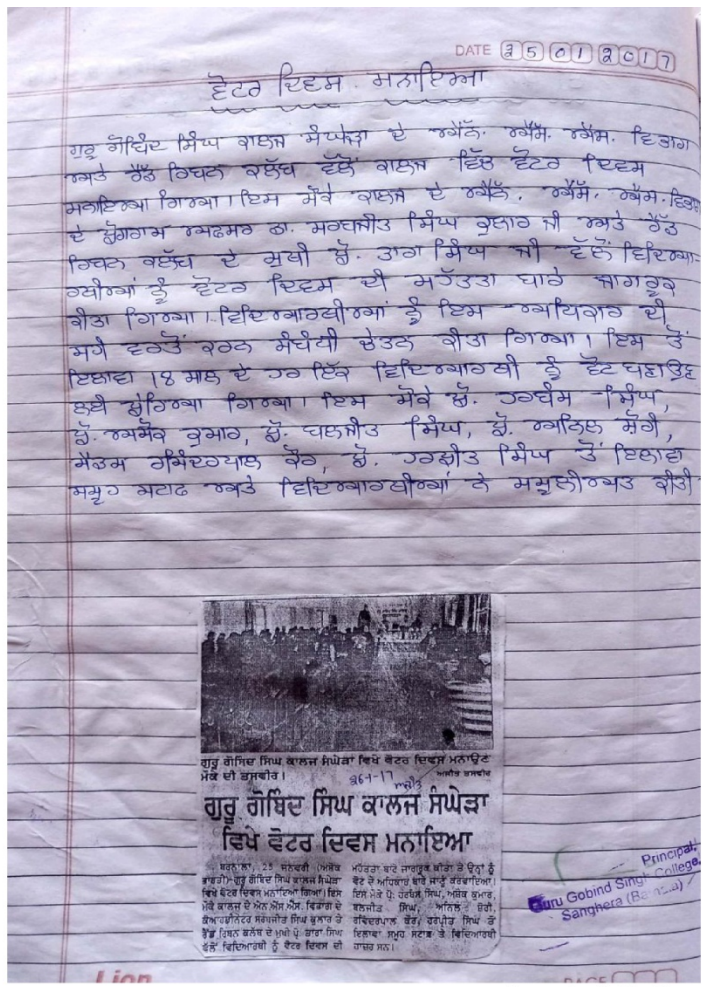 DATE 25 01 2017
ਵੋਟਰ ਦਿਵਸ ਮਨਾਇਆ
ਗੁਰੂ ਗੋਬਿੰਦ ਸਿੰਘ ਕਾਲਜ ਸੰਘੇੜਾ ਦੇ ਐਨ. ਐਸ. ਐਸ. ਵਿਭਾਗ
ਅਤੇ ਰੈੱਡ ਰਿਬਨ ਕਲੱਬ ਵੱਲੋਂ ਕਾਲਜ ਵਿੱਚ ਵੋਟਰ ਦਿਵਸ
ਮਨਾਇਆ ਗਿਆ। ਇਸ ਮੌਕੇ ਕਾਲਜ ਦੇ ਐਨ. ਐਸ. ਐਸ. ਵਿਭਾਗ
ਦੇ ਪ੍ਰੋਗਰਾਮ ਅਫਸਰ ਡਾ. ਸਰਬਜੀਤ ਸਿੰਘ ਕੁਲਾਰ ਜੀ ਅਤੇ ਰੈੱਡ
ਰਿਬਨ ਕਲੱਬ ਦੇ ਮੁਖੀ ਪ੍ਰੋ. ਤਾਰਾ ਸਿੰਘ ਜੀ ਵੱਲੋਂ ਵਿਦਿਆ-
ਰਥੀਆਂ ਨੂੰ ਵੋਟਰ ਦਿਵਸ ਦੀ ਮਹੱਤਤਾ ਬਾਰੇ ਜਾਗਰੂਕ
ਕੀਤਾ ਗਿਆ। ਵਿਦਿਆਰਥੀਆਂ ਨੂੰ ਇਸ ਅਧਿਕਾਰ ਦੀ
ਸਹੀ ਵਰਤੋਂ ਕਰਨ ਸੰਬੰਧੀ ਚੇਤਨ ਕੀਤਾ ਗਿਆ। ਇਸ ਤੋਂ
ਇਲਾਵਾ 18 ਸਾਲ ਦੇ ਹਰ ਇੱਕ ਵਿਦਿਆਰਥੀ ਨੂੰ ਵੋਟ ਬਣਾਉਣ
ਲਈ ਪ੍ਰੇਰਿਆ ਗਿਆ। ਇਸ ਮੌਕੇ ਪ੍ਰੋ. ਹਰਬੰਸ ਸਿੰਘ,
ਪ੍ਰੋ. ਅਸ਼ੋਕ ਕੁਮਾਰ, ਪ੍ਰੋ. ਬਲਜੀਤ ਸਿੰਘ, ਪ੍ਰੋ. ਅਨਿਲ ਸ਼ੋਰੀ,
ਮੈਡਮ ਰਵਿੰਦਰਪਾਲ ਕੌਰ, ਪ੍ਰੋ. ਹਰਪ੍ਰੀਤ ਸਿੰਘ ਤੋਂ ਇਲਾਵਾ
ਸਮੂਹ ਸਟਾਫ ਅਤੇ ਵਿਦਿਆਰਥੀਆਂ ਨੇ ਸ਼ਮੂਲੀਅਤ ਕੀਤੀ
ਗੁਰੂ ਗੋਬਿੰਦ ਸਿੰਘ ਕਾਲਜ ਸੰਘੇੜਾ ਵਿਖੇ ਵੋਟਰ ਦਿਵਸ ਮਨਾਉਣ
ਮੌਕੇ ਦੀ ਤਸਵੀਰ। ਅਜੀਤ ਤਸਵੀਰ
26-1-17 ਅਜੀਤ
ਗੁਰੂ ਗੋਬਿੰਦ ਸਿੰਘ ਕਾਲਜ ਸੰਘੇੜਾ
ਵਿਖੇ ਵੋਟਰ ਦਿਵਸ ਮਨਾਇਆ
ਬਰਨਾਲਾ, 25 ਜਨਵਰੀ (ਅਸ਼ੋਕ
ਭਾਰਤੀ)-ਗੁਰੂ ਗੋਬਿੰਦ ਸਿੰਘ ਕਾਲਜ ਸੰਘੇੜਾ
ਵਿਖੇ ਵੋਟਰ ਦਿਵਸ ਮਨਾਇਆ ਗਿਆ। ਇਸ
ਮੌਕੇ ਕਾਲਜ ਦੇ ਐਨ.ਐਸ.ਐਸ. ਵਿਭਾਗ ਦੇ
ਕੋਆਰਡੀਨੇਟਰ ਸਰਬਜੀਤ ਸਿੰਘ ਕੁਲਾਰ ਤੇ
ਰੈੱਡ ਰਿਬਨ ਕਲੱਬ ਦੇ ਮੁਖੀ ਪ੍ਰੋ: ਤਾਰਾ ਸਿੰਘ
ਵੱਲੋਂ ਵਿਦਿਆਰਥੀ ਨੂੰ ਵੋਟਰ ਦਿਵਸ ਦੀ
ਮਹੱਤਤਾ ਬਾਰੇ ਜਾਗਰੂਕ ਕੀਤਾ ਤੇ ਉਨ੍ਹਾਂ ਨੂੰ
ਵੋਟ ਦੇ ਅਧਿਕਾਰ ਬਾਰੇ ਜਾਣੂੰ ਕਰਵਾਇਆ।
ਇਸ ਮੌਕੇ ਪ੍ਰੋ: ਹਰਬੰਸ ਸਿੰਘ, ਅਸ਼ੋਕ ਕੁਮਾਰ,
ਬਲਜੀਤ ਸਿੰਘ, ਅਨਿਲ ਸ਼ੋਰੀ,
ਰਵਿੰਦਰਪਾਲ ਕੌਰ, ਹਰਪ੍ਰੀਤ ਸਿੰਘ ਤੋਂ
ਇਲਾਵਾ ਸਮੂਹ ਸਟਾਫ਼ ਤੇ ਵਿਦਿਆਰਥੀ
ਹਾਜ਼ਰ ਸਨ।
Principal,
Guru Gobind Singh College,
Sanghera (Barnala)
Lion
PAGE